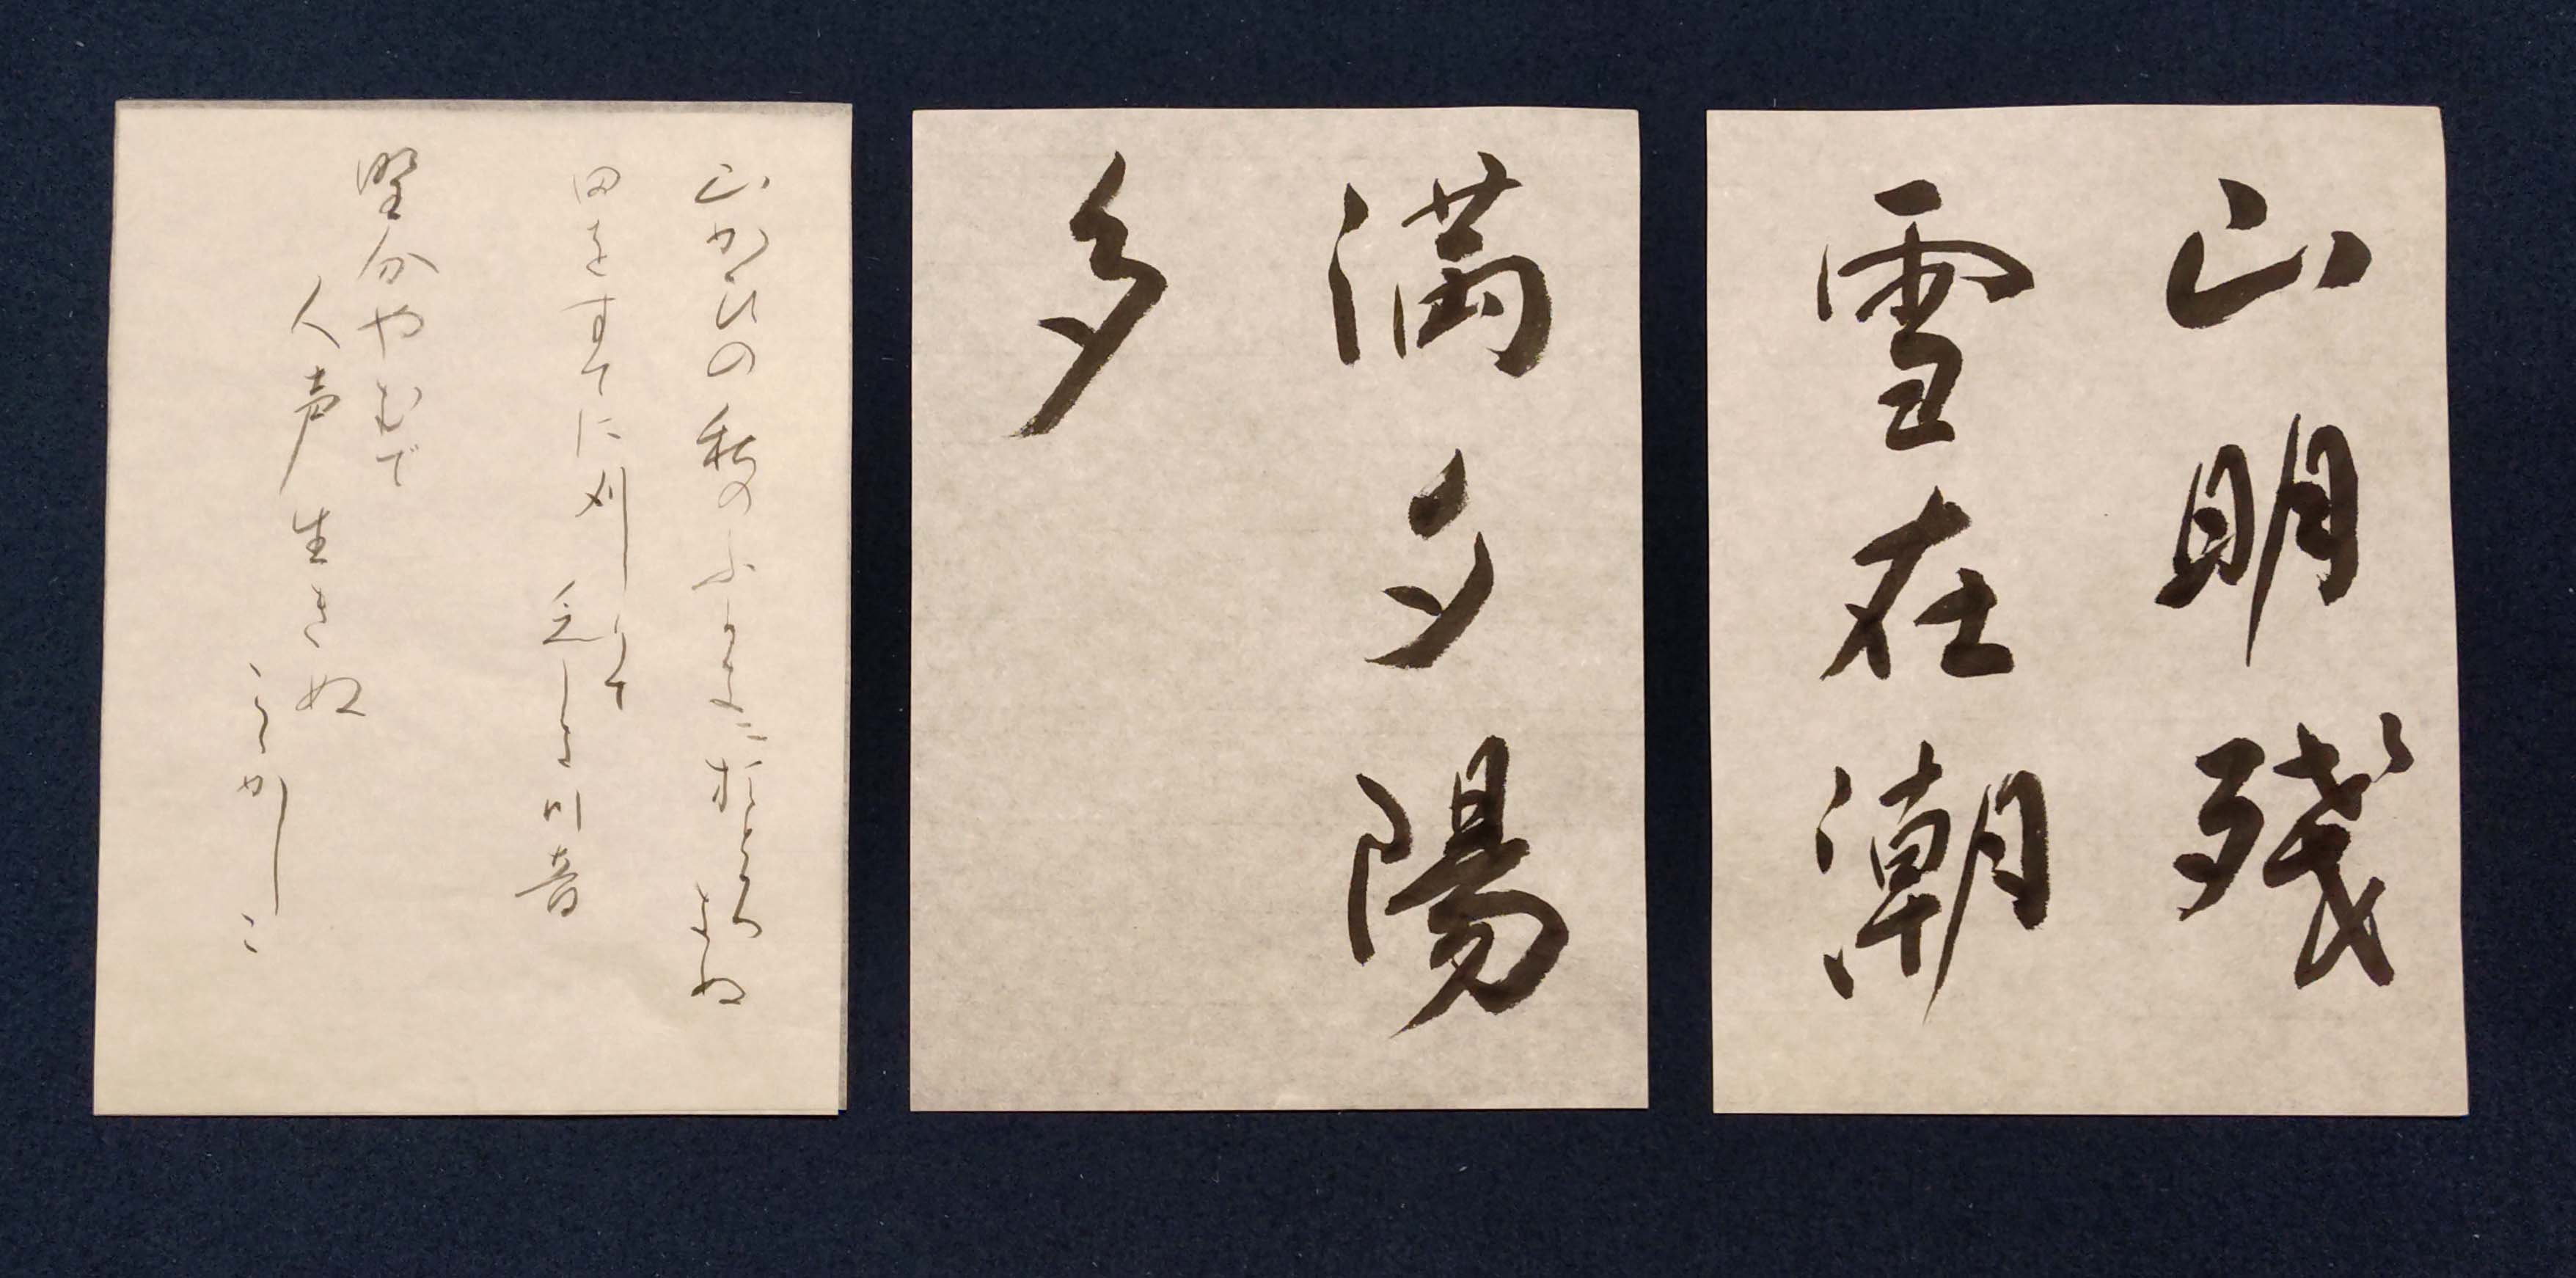 山明殘
雪在潮
満夕陽
多
山かひの秋のふかきにおとろ
きぬ
田をすてに刈りて
乏しき川音
野分やむで
人声生きぬ
こゝかしこ